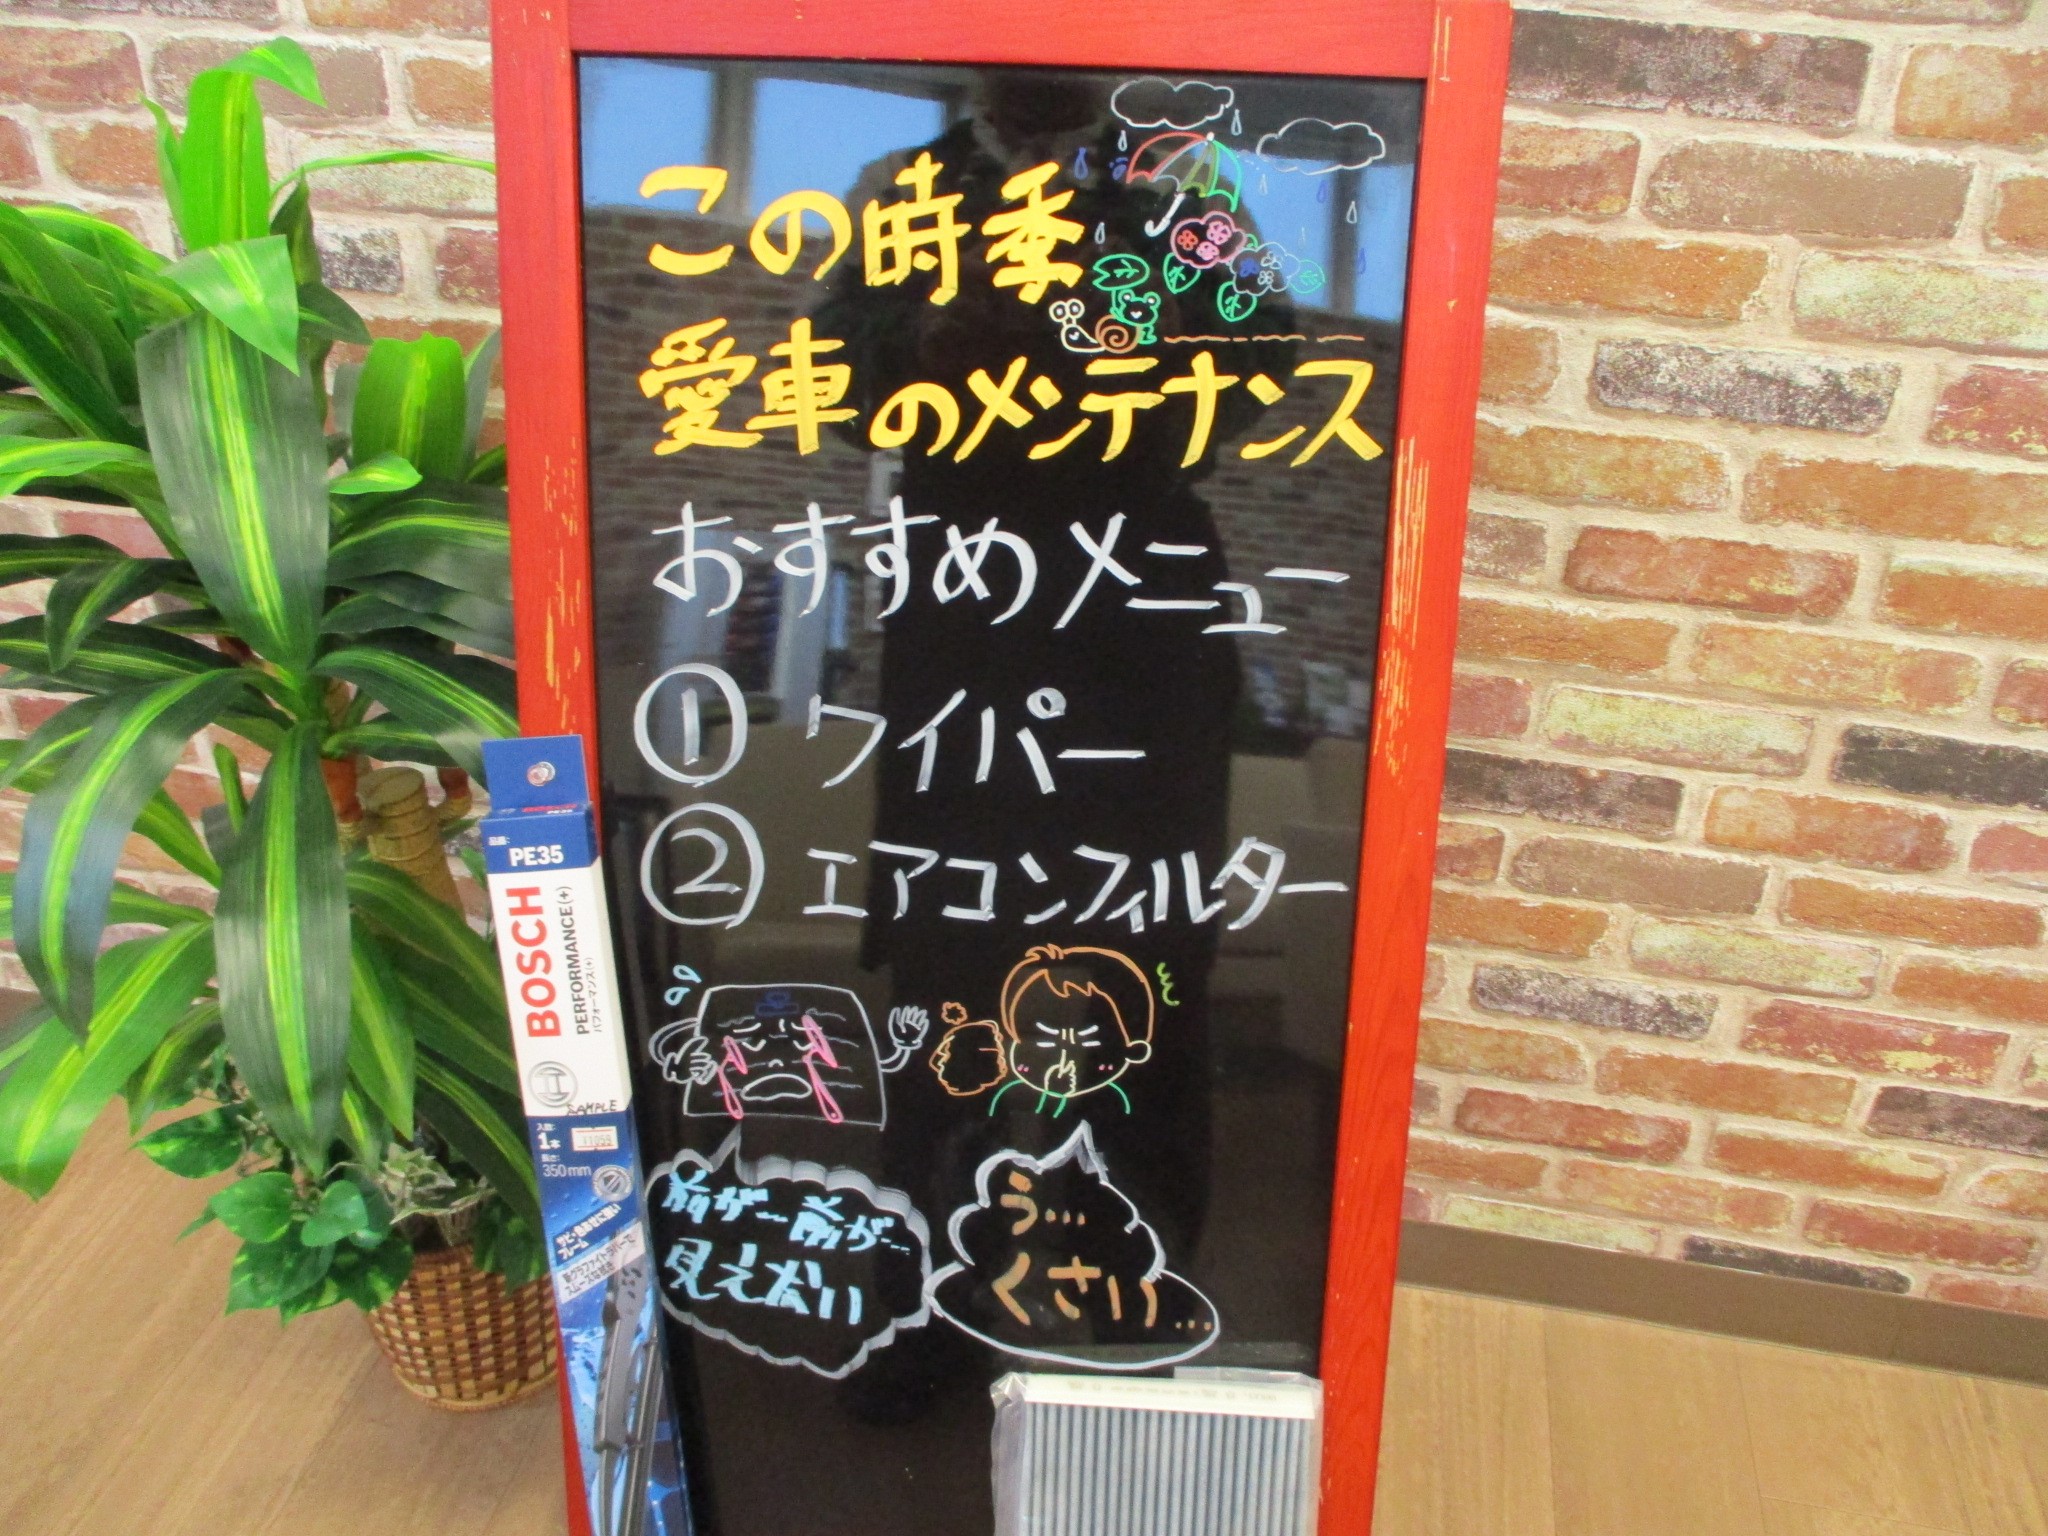 この時季
愛車のメンテナンス
おすすめメニュー
① ワイパー
② エアコンフィルター
前が…前が…
見えない
う…
くさい…
品番:
PE35
BOSCH
PERFORMANCE(+)
パフォーマンス(+)
SAMPLE
入数:
1本
長さ:
350mm
フレーム